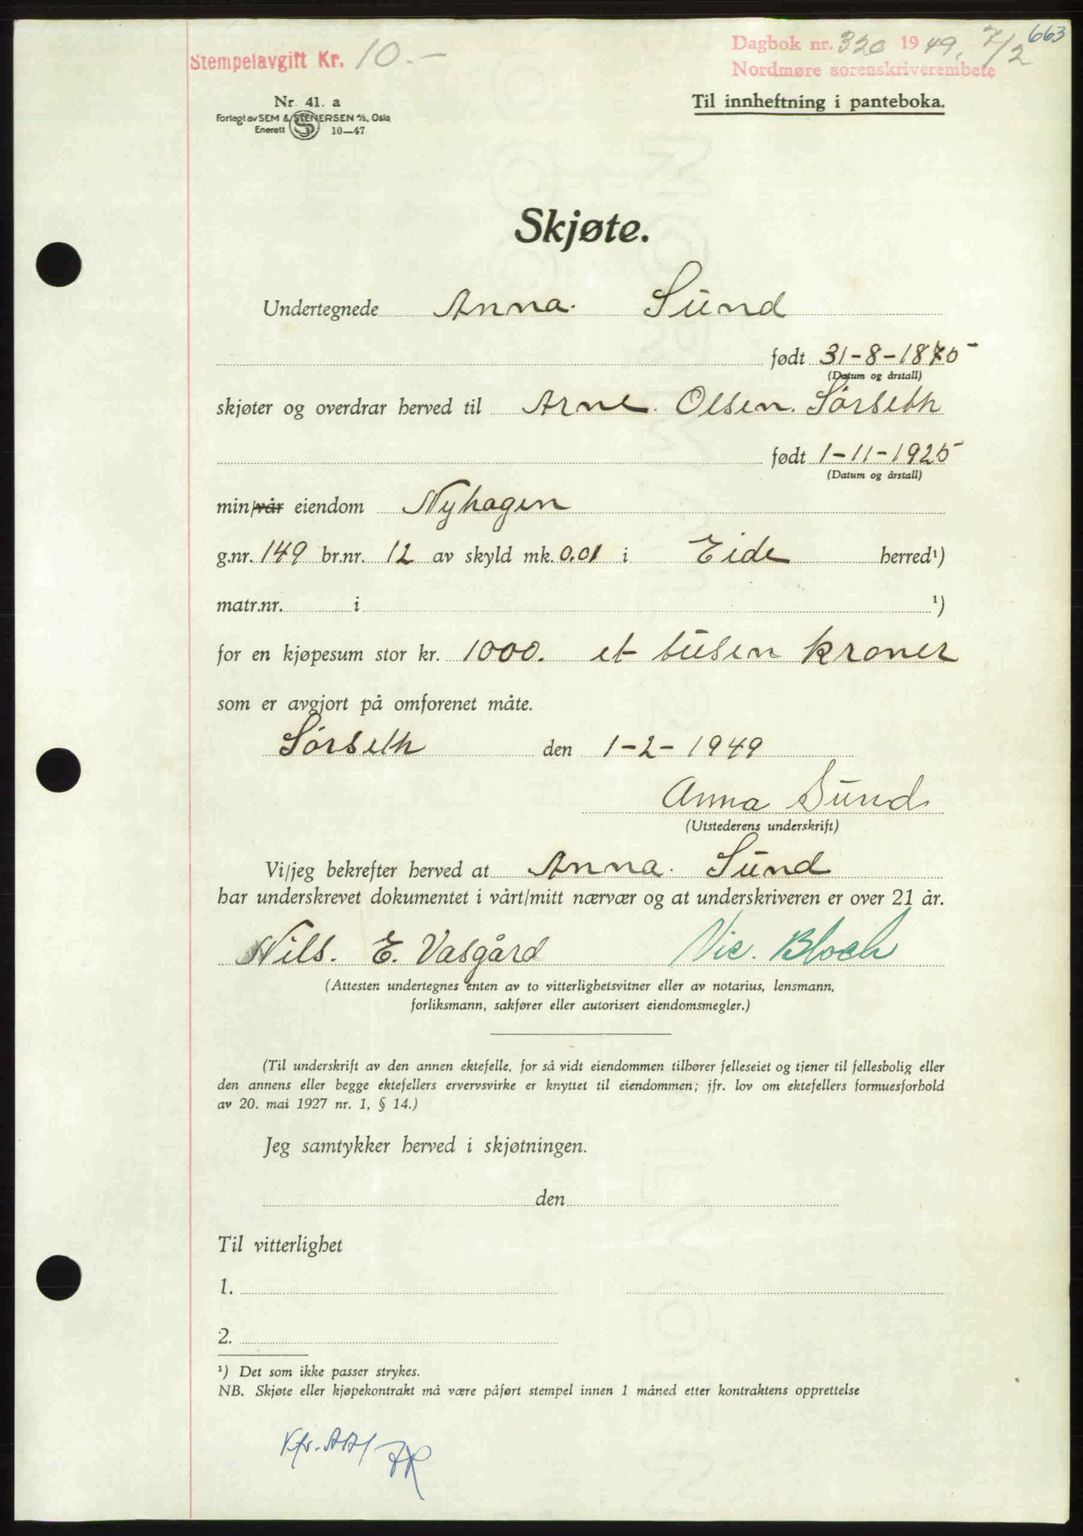 663
Stempelavgift Kr. 10.-
Dagbok nr. 320 1949. 7/2
Nordmøre sorenskriverembete
Nr. 41. a
Forlagt av SEM & STENERSEN A/S, Oslo
Enerett 10-47
Til innheftning i panteboka.
Skjøte.
Undertegnede Anna Sund
født 31-8-1875
(Datum og årstall)
skjøter og overdrar herved til Arne Olsen Sørseth
født 1-11-1925
(Datum og årstall)
min/vår eiendom Nyhagen
g.nr. 149 br.nr. 12 av skyld mk. 0.01 i Eide herred¹)
matr.nr. i ¹)
for en kjøpesum stor kr. 1000. et tusen kroner
som er avgjort på omforenet måte.
Sørseth den 1-2-1949
Anna Sund
(Utstederens underskrift)
Vi/jeg bekrefter herved at Anna Sund
har underskrevet dokumentet i vårt/mitt nærvær og at underskriveren er over 21 år.
Nils. E. Vasgård Nic. Bloch
(Attesten undertegnes enten av to vitterlighetsvitner eller av notarius, lensmann,
forliksmann, sakfører eller autorisert eiendomsmegler.)
(Til underskrift av den annen ektefelle, for så vidt eiendommen tilhører felleseiet og tjener til fellesbolig eller
den annens eller begge ektefellers ervervsvirke er knyttet til eiendommen; jfr. lov om ektefellers formuesforhold
av 20. mai 1927 nr. 1, § 14.)
Jeg samtykker herved i skjøtningen.
den
Til vitterlighet
1.
2.
¹) Det som ikke passer strykes.
NB. Skjøte eller kjøpekontrakt må være påført stempel innen 1 måned etter kontraktens opprettelse
Kfr.